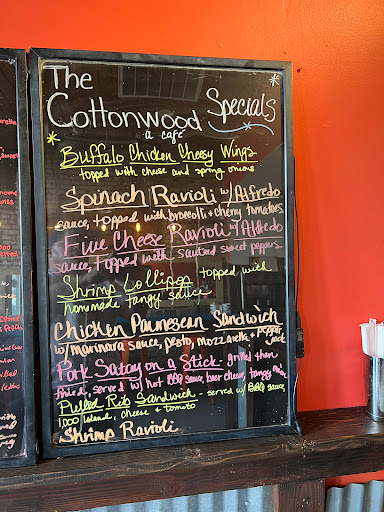 The
Cottonwood
a café
Specials
Buffalo Chicken Cheesy Wings
topped with cheese and spring onions
Spinach Ravioli w/ Alfredo
sauce, topped with broccoli + cherry tomatoes
Five Cheese Ravioli w/ Alfredo
sauce, topped with sautéed sweet peppers
Shrimp Lollipops topped with
homemade tangy sauce
Chicken Parmesean Sandwich
w/ marinara sauce, pesto, mozzarella + pepper
jack
Pork Satay on a Stick - grilled then
fried, served w/ hot BBQ sauce, beer cheese, tangy
Pulled Rib Sandwich - served w/ BBQ sauce,
1,000 Island, cheese + tomato
Shrimp Ravioli